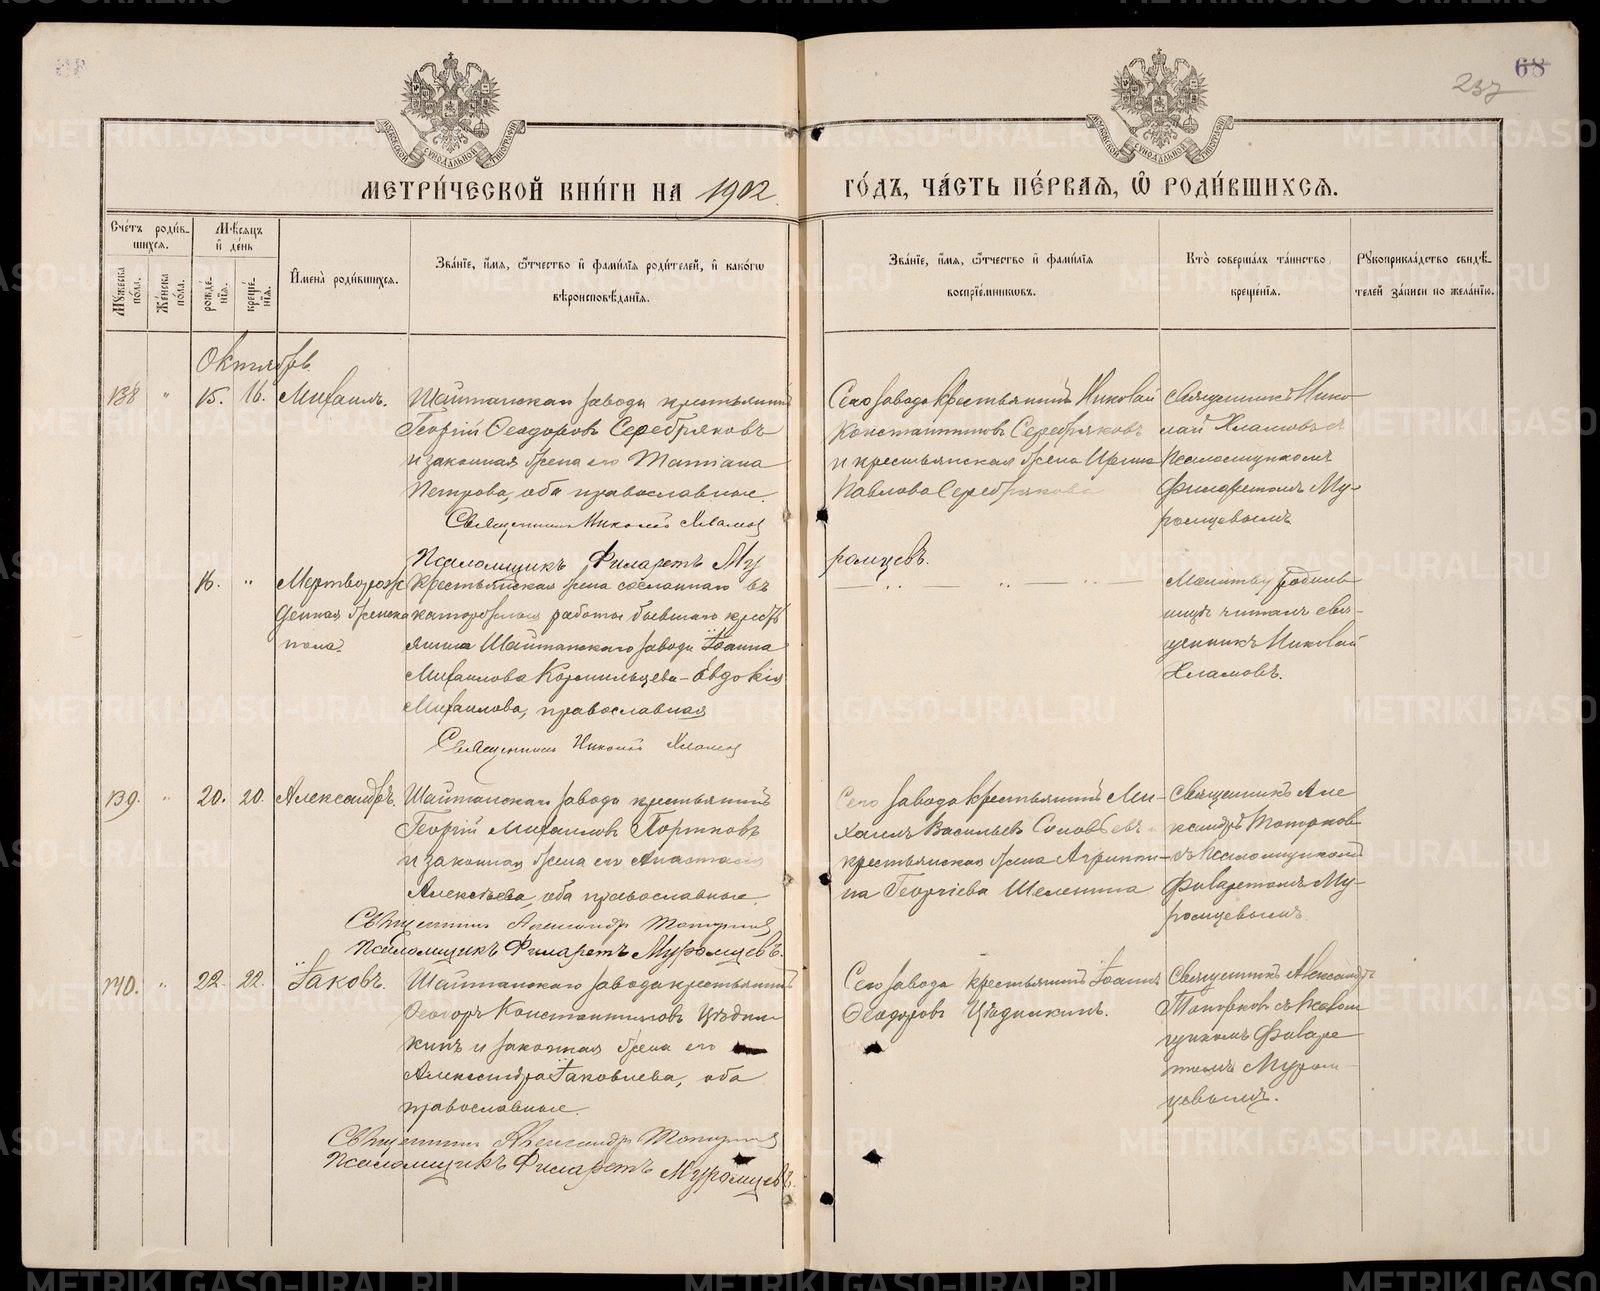 68
237
МОСКОВСКОЙ СѴНОДАЛЬНОЙ ТИПОГРАФІИ
МОСКОВСКОЙ СѴНОДАЛЬНОЙ ТИПОГРАФІИ
МЕТРИ́ЧЕСКОЙ КНИ́ГИ НА 1902 ГО́ДЪ, ЧА́СТЬ ПЕ́РВАѦ, Ѽ РОДИ́ВШИХСѦ.
Сче́тъ роди́в-
шихсѧ.
Мѣ́сѧцъ
и҆ де́нь
Мꙋ́жеска по́ла.
Же́нска по́ла.
рожде́-
нїѧ.
креще́-
нїѧ.
И҆мена̀ роди́вшихсѧ.
Зва́нїе, и҆́мѧ, ѻ҆́тчество и҆ фами́лїѧ роди́телей, и҆ како́гѡ
вѣроисповѣ́данїѧ.
Зва́нїе, и҆́мѧ, ѻ҆́тчество и҆ фами́лїѧ
воспрїе́мникѡвъ.
Кто̀ соверша́лъ та́инство
креще́нїѧ.
Рꙋкоприкла́дство свидѣ́-
телей за́писи по жела́нїю.
Октябрь.
138 " 15. 16. Михаилъ.
Шайтанскаго завода крестьянинъ
Георгій Ѳеодоровъ Серебряковъ
и законная жена его Татіана
Петрова, оба православные.
Священникъ Николай Хламов
Псаломщикъ Филаретъ Му
ромцевъ.
Сего завода крестьянинъ Николай
Константиновъ Серебряковъ
и крестьянская жена Ирина
Павлова Серебрякова
Священникъ Нико
лай Хламовъ съ
Псаломщикомъ
Филаретомъ Му-
ромцевымъ
16. " Мертворож
денная женска
пола.
Крестьянская жена сосланнаго въ
каторжныя работы бывшаго кресть
янина Шайтанскаго завода Іоанна
Михаилова Кормильцева - Евдокія
Михаилова, православная
Священникъ Николай Хламов
Молитву родиль
ницѣ читалъ свя-
щенникъ Николай
Хламовъ.
139. " 20. 20. Александръ.
Шайтанскаго завода крестьянинъ
Георгій Михаиловъ Портновъ
и законная жена его Анастасія
Алексѣева, оба православные.
Священникъ Александръ Топорков
Псаломщикъ Филаретъ Муромцевъ.
Сего завода крестьянинъ Ми-
хаилъ Васильевъ Соловьевъ и
крестьянская жена Агриппи-
на Георгіева Шеленина
Священникъ Але
ксандръ Топорков
съ Псаломщикомъ
Филаретомъ Му-
ромцевымъ.
140. " 22. 22. Іаковъ.
Шайтанскаго завода крестьянинъ
Ѳеодоръ Константиновъ Цѣдил
кинъ и законная жена его
Александра Іаковлева, оба
православные.
Священникъ Александръ Топорков
Псаломщикъ Филаретъ Муромцевъ.
Сего завода крестьянинъ Іоаннъ
Ѳеодоровъ Цѣдилкинъ.
Священникъ Александръ
Топорковъ съ Псалом
щикомъ Филаре
томъ Муром-
цевымъ.
METRIKI.GASO-URAL.RU